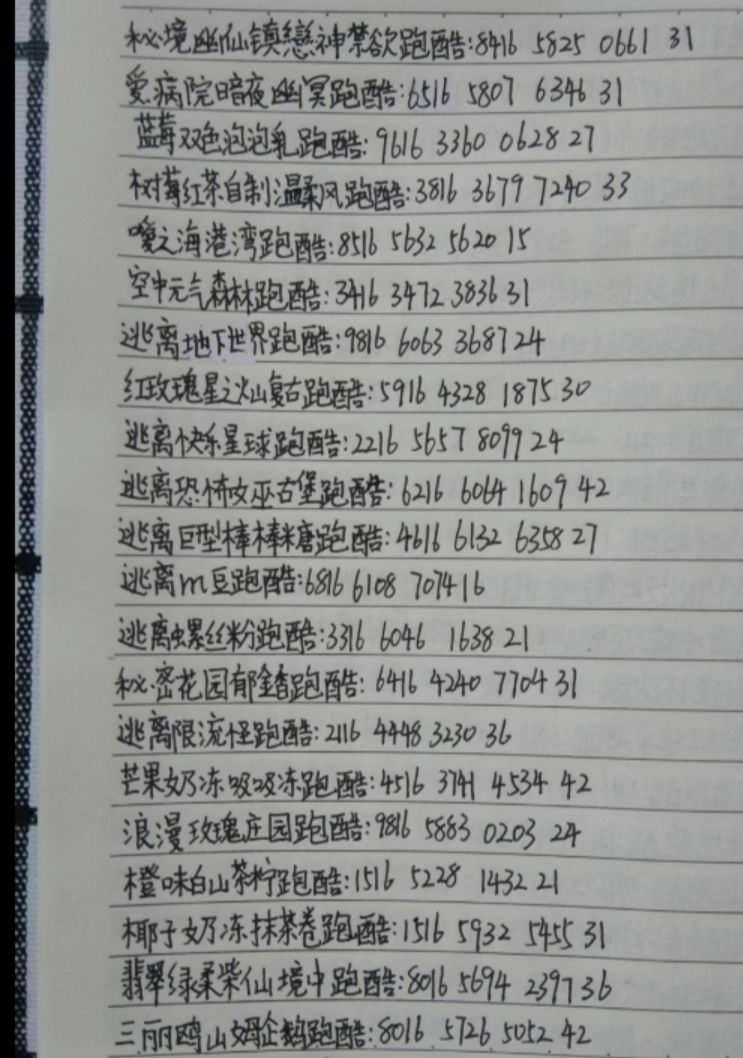 秘境幽仙镇戀神禁欲跑酷:8416 5825 0661 31
爱病院暗夜幽冥跑酷:6516 5807 6346 31
蓝莓双色泡泡乳跑酷:9616 3360 0628 27
树莓红茶自制温柔风跑酷:3816 3679 7240 33
之海港湾跑酷:8516 5632 5620 15
空中元气森林跑酷:3416 3472 3836 31
逃离地下世界跑酷:9816 6063 3687 24
红玫瑰星之火山复古跑酷:5916 4328 1875 30
逃离快乐星球跑酷:2216 5657 8099 24
逃离恐怖女巫古堡跑酷:6216 6064 1609 42
逃离巨型棒棒糖跑酷:4616 6132 6358 27
逃离m豆跑酷:6816 6108 7074 16
逃离螺丝粉跑酷:3316 6046 1638 21
秘密花园郁金香跑酷:6416 4240 7704 31
逃离限流怪跑酷:2116 4448 3230 36
芒果奶冻吸吸冻跑酷:4516 3741 4534 42
浪漫玫瑰庄园跑酷:9816 5883 0203 24
橙味白山茶柠跑酷:1516 5228 1432 21
椰子奶冻抹茶卷跑酷:1516 5932 5455 31
翡翠绿柔柴仙境中跑酷:8016 5694 2397 36
三丽鸥山姆企鹅跑酷:8016 5726 5052 42